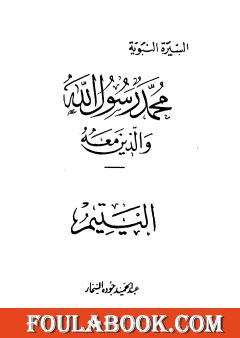 السيرة النبوية
محمد رسول الله
والذين معه
اليتيم
عبد الحميد جوده السحار
FOULABOOK.COM